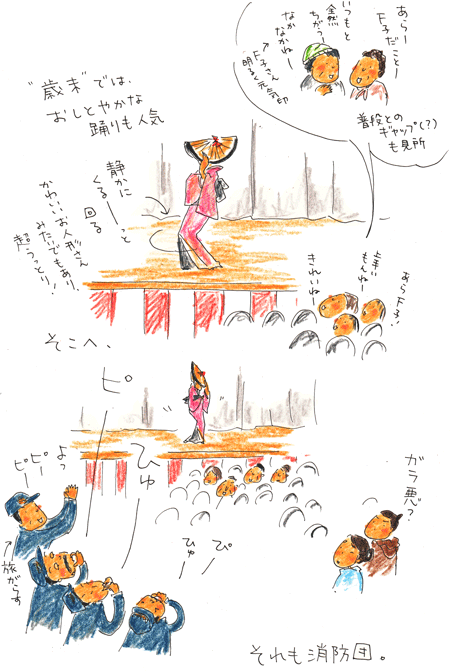 あらー
F子だことー
いつもと
全然
ちがうー
なか
なかねー
↑F子さん
明るく元気印
普段との
ギャップ(?)
も見所
"歳末"では、
おしとやかな
踊りも人気
静かに
くるーっと
回る
かわいいお人形さん
みたいでもあり、
超うっとり!
あらF子!
上手い
もんねー
きれいねー
そこへ、
ピ
ひゅ
よっ
ピー
ピー
↑旅がらす
ひゅ
ぴ
ガラ悪?
それも消防団。